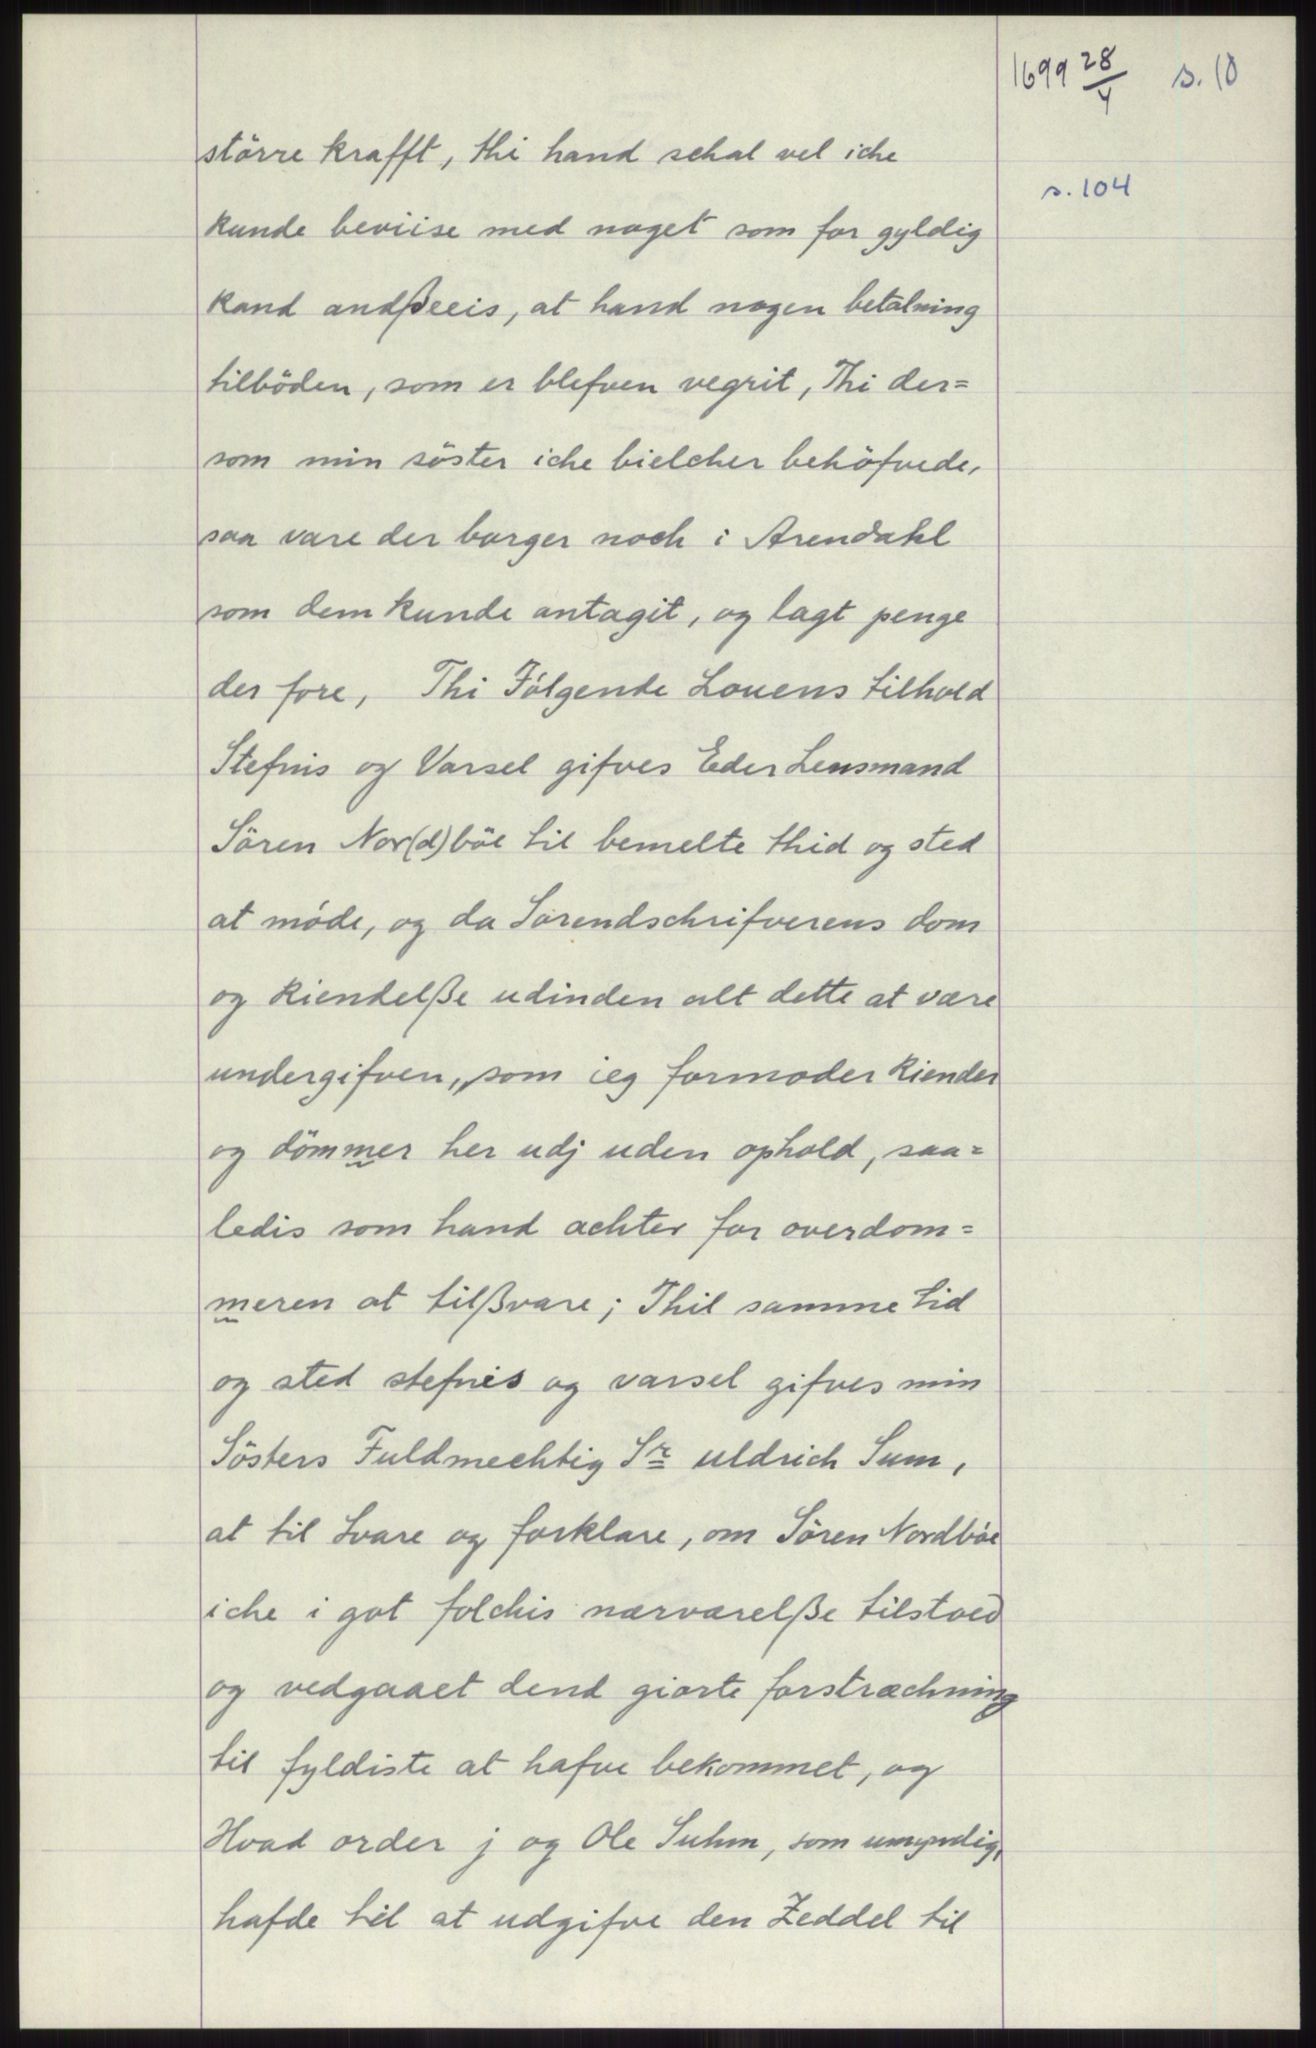 1699 28/4 s. 10
s. 104
större krafft, thi hand schal vel iche
kunde beviise med noget som for gyldig
kand andßeeis, at hand nogen betalning
tilböden, som er blefven vegrit, Thi der=
som min söster iche bielcher behöfvede,
saa vare der borger noch i Arendahl
som dem kunde antagit, og lagt penge
der fore, Thi Fölgende Louens tilhold
Stefnis og Varsel gifves Eder Lensmand
Sören Nor(d)böe til bemelte thid og sted
at möde, og da Sorendschrifverens dom
og kiendelße udinden alt dette at være
undergifven, som ieg formoder kiender
og dömmer her udj uden ophold, saa=
ledis som hand achter for overdom=
meren at tilßvare; Thil samme tid
og sted stefnis og varsel gifves min
Sösters Fuldmechtig Sr uldrich Sum,
at til svare og forklare, om Sören Nordböe
iche i got folchis nærværelße tilstoed
og vedgaaet dend giorte forstræchning
til fyldiste at hafve bekommet, og
Hvad order j og Ole Suhm, som umyndig,
hafde til at udgifve den Zeddel til